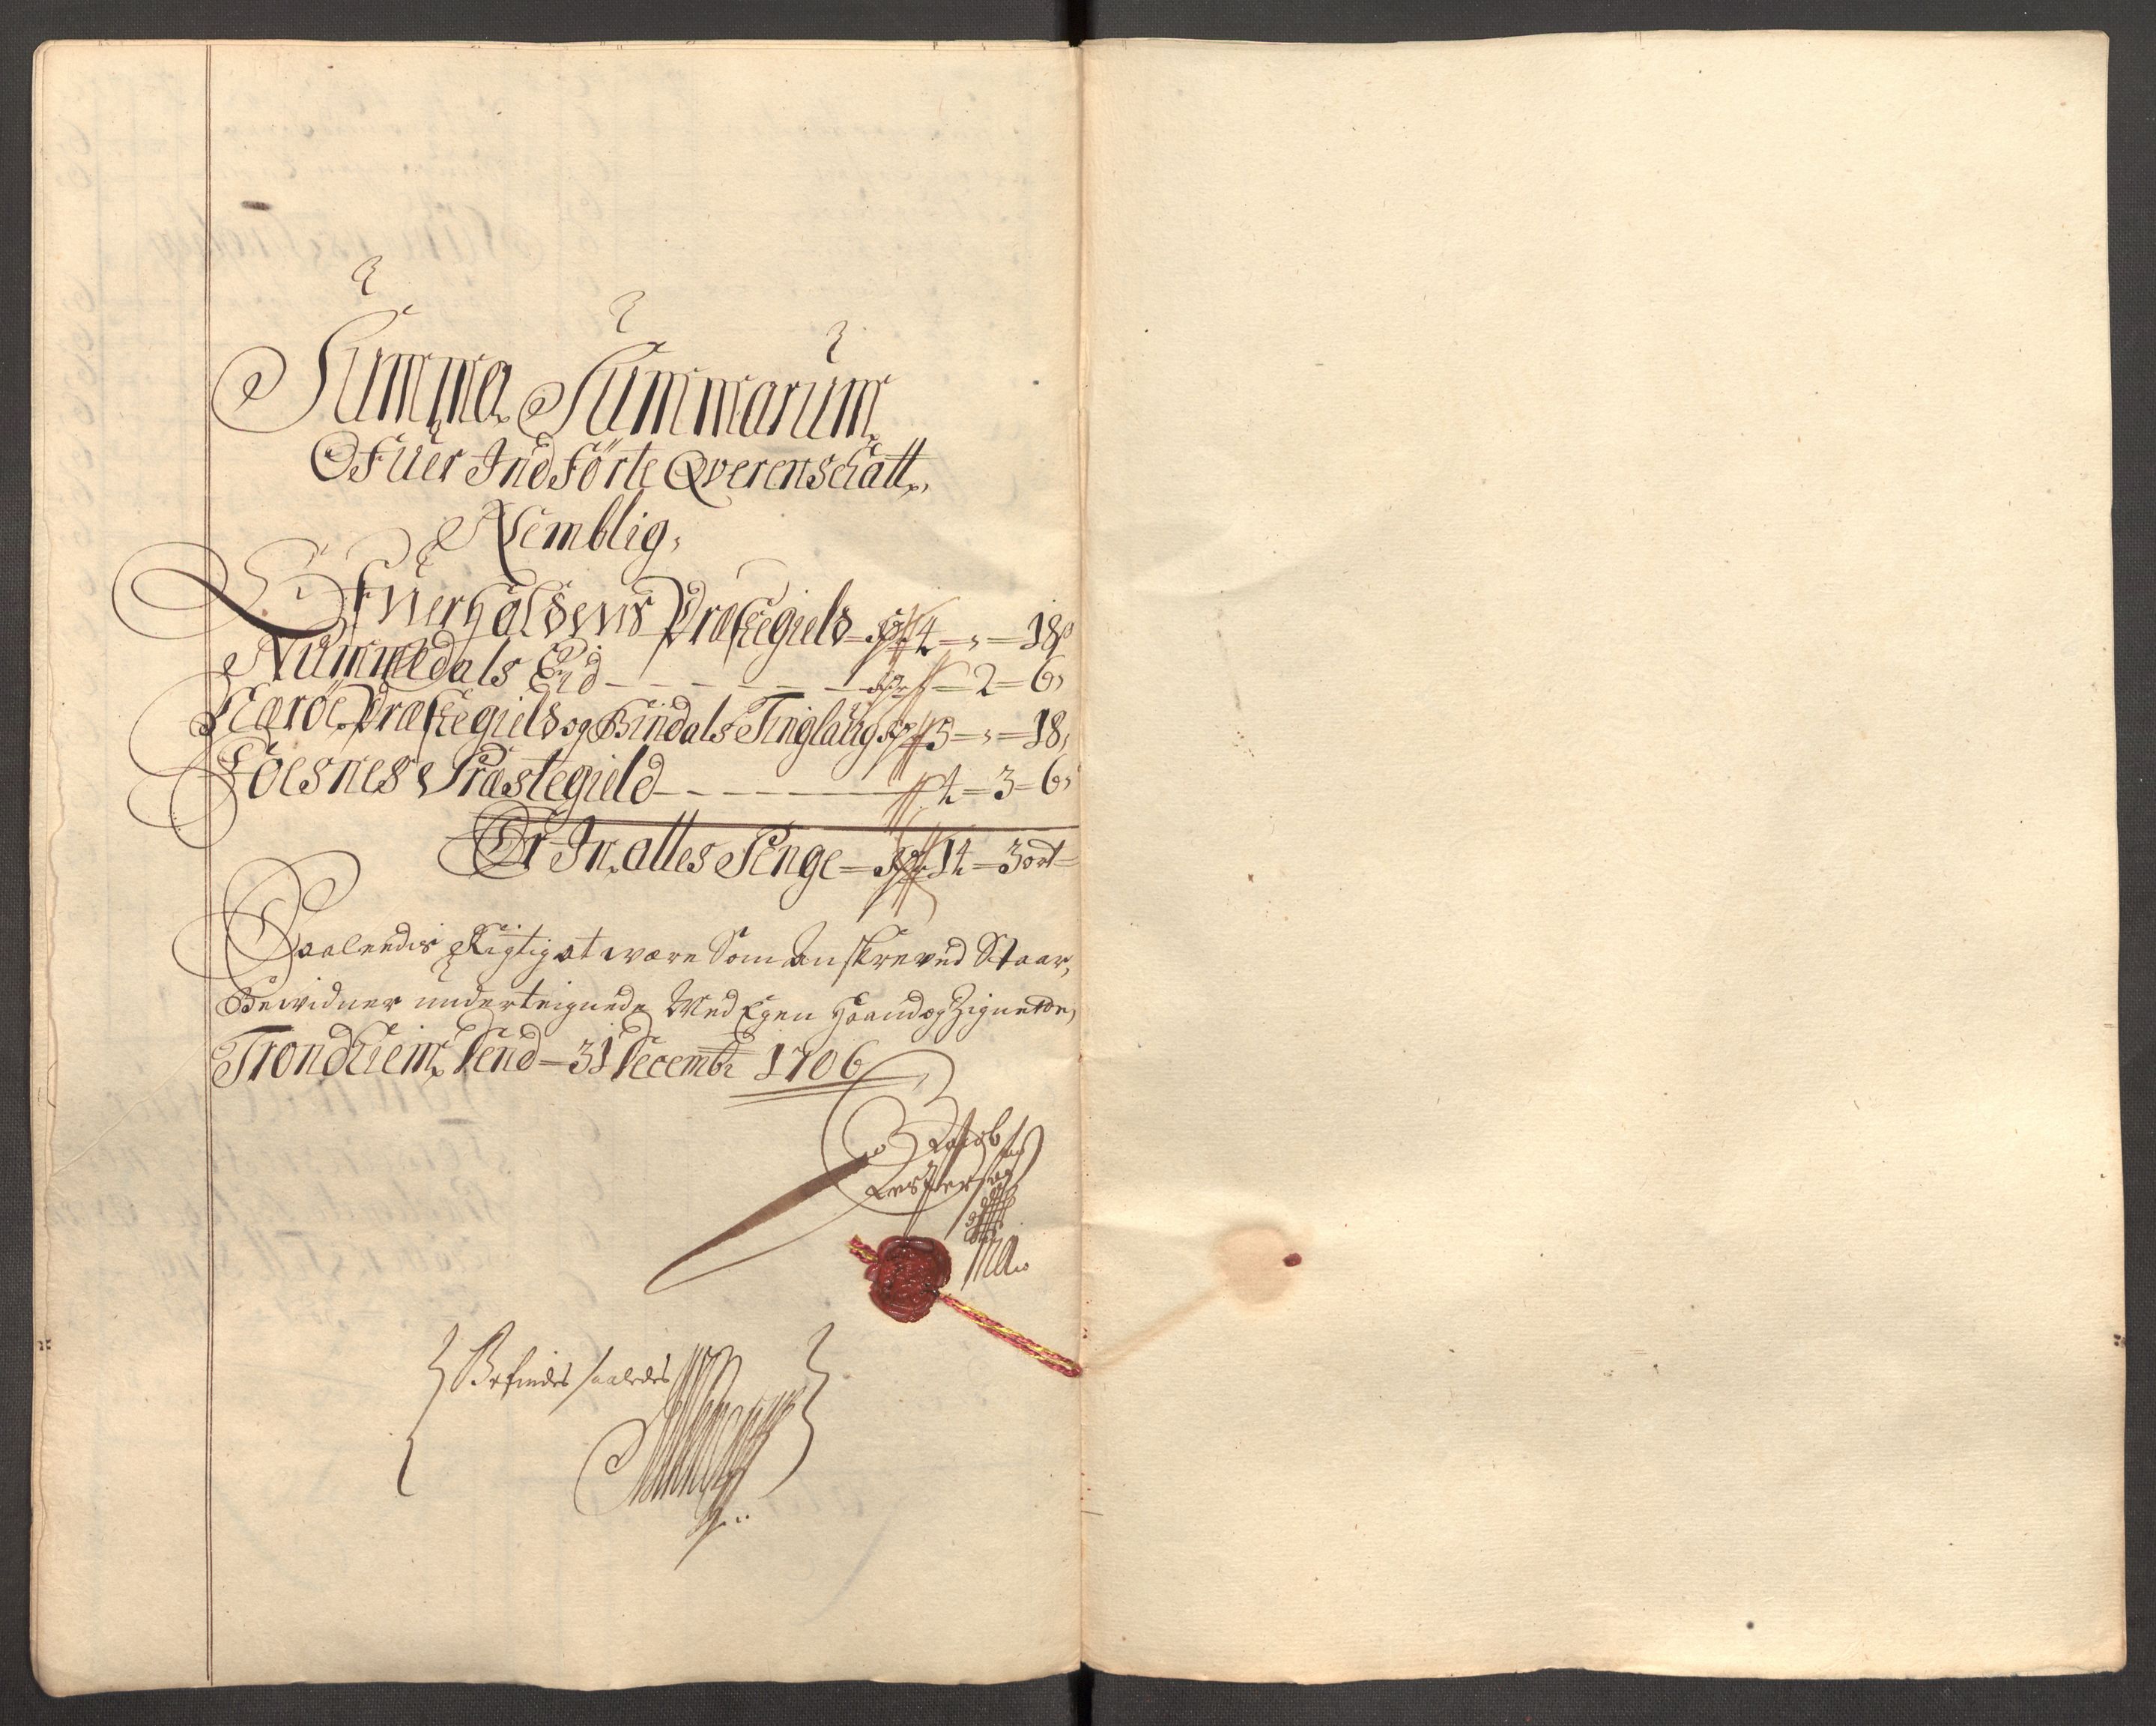 Summa Summarum
Ofuer Indförte Qverenschatt,
Nemblig,
Ofuerhaldens Præstegield – Spr 4 – , – 18 ,
Nummedals Eid – – – – – – Spr – 2 – 6 ,
Nærøe Præstegield og Bindals Tinglaug Spr 5 – , – 18 ,
Foesnes Præstegield – – – – – – 4 – 3 – 6 ,
Er In alles Penge – Spr 14 – 3 ort –
Saaledis Rigtig at være Som Anskreved Staar,
Bewidner underteignede Med Egen Haand og Zignette,
Trondheim, dend – 31 Decembr 1706
Jacob
Jespersøn
Befindes saaledes